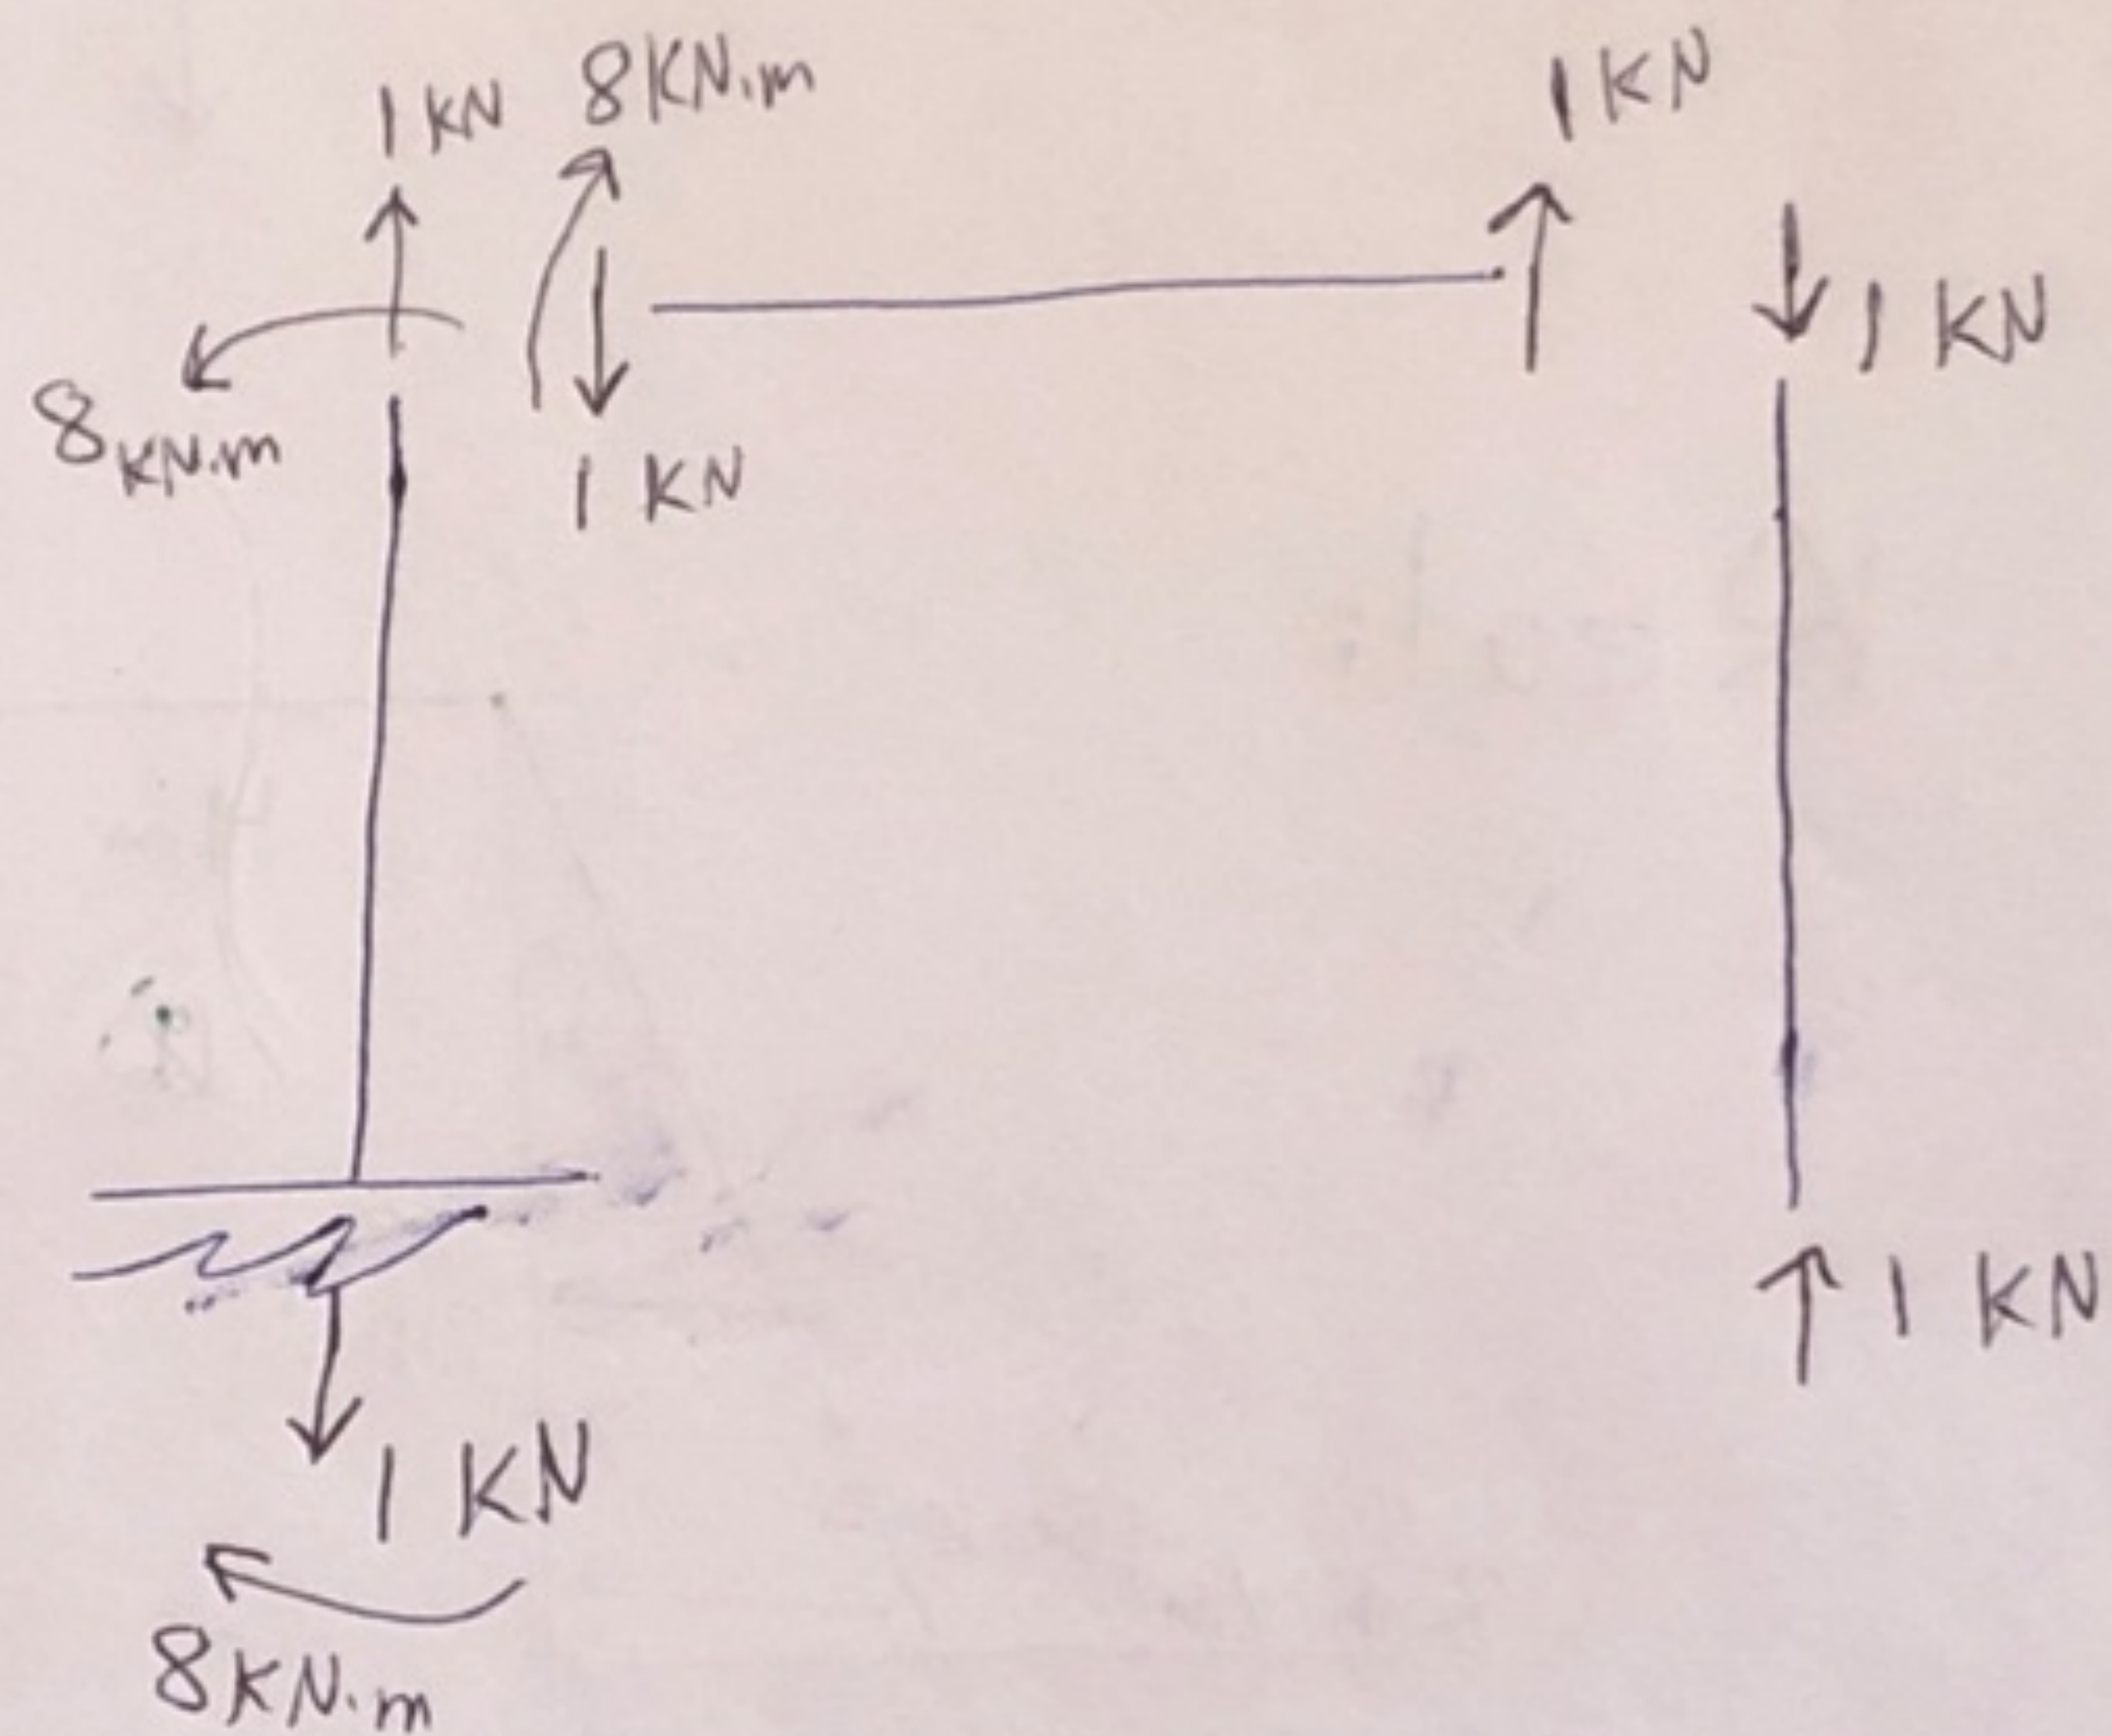 1 KN 8 KN.m 1 KN
8 KN.m 1 KN 1 KN
1 KN
1 KN
8 KN.m